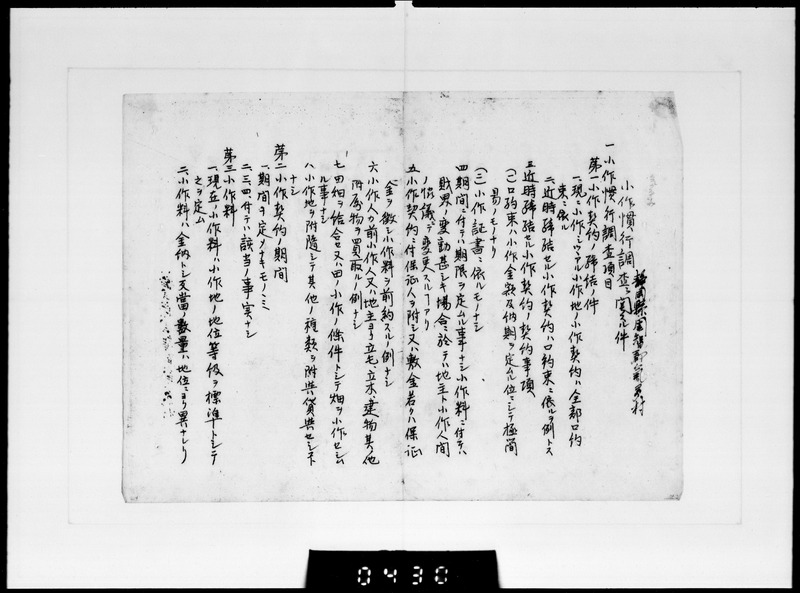 静岡県周智郡
小作慣行調査ニ関スル件
一小作慣行調査項目
第一小作契約ノ締結ノ件
一、現ニ小作シツヽアル小作地小作契約ハ全部口約
束ニ依ル
二、近時締結セル小作契約ハ口約束ニ依ルヲ例トス
三近時締結セル小作契約ノ契約事項
(一)口約束ハ小作金額及納期ヲ定ムル位ニシテ極簡
易ノモノナリ
(三)小作証書ニ依ルモノナシ
四期間ニ付テハ期限ヲ定ムル事ナシ小作料ニ付テハ
財界ノ変動甚シキ場合ニ於テハ地主ト小作人間
ノ協議デ変更スルコアリ
五小作契約ニ付保証人ヲ附シ又ハ敷金若クハ保証
金ヲ徴シ小作料ヲ前約スルノ例ナシ
六小作人カ前小作人又ハ地主ヨリ立毛、立木、建物其ノ他
附属物ヲ買取ルノ例ナシ
七田畑ヲ結合セ又ハ田ノ小作ノ條件トシテ畑ヲ小作セシム
ル事ナシ
八小作地ヲ附随シテ其ノ他ノ種類ヲ附共ニ貸与セシ
ナシ
第二小作契約ノ期間
一、期間ヲ定メナキモノノミ
二、三四付テハ該当ノ事実ナシ
第三小作料
一、現在ノ小作料ハ小作地ノ地位等級ヲ標準トシテ
之ヲ定ム
二、小作料ハ金納トシ反當ノ数量ハ地位ニヨリ異ナレリ
0430